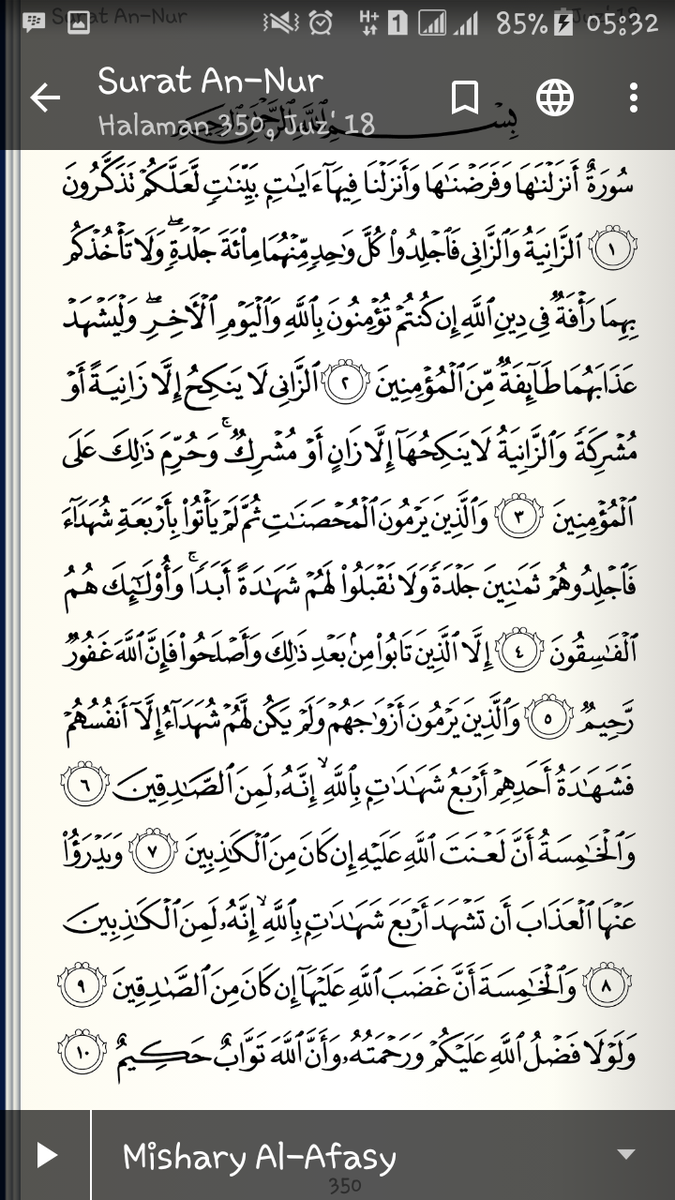 85% 05:32
Surat An-Nur
Halaman 350, Juz' 18
بِسْمِ اللَّهِ الرَّحْمَٰنِ الرَّحِيمِ
سُورَةٌ أَنزَلْنَٰهَا وَفَرَضْنَٰهَا وَأَنزَلْنَا فِيهَآ ءَايَٰتٍۭ بَيِّنَٰتٍ لَّعَلَّكُمْ تَذَكَّرُونَ
١ ٱلزَّانِيَةُ وَٱلزَّانِى فَٱجْلِدُوا۟ كُلَّ وَٰحِدٍ مِّنْهُمَا مِا۟ئَةَ جَلْدَةٍ ۖ وَلَا تَأْخُذْكُم
بِهِمَا رَأْفَةٌ فِى دِينِ ٱللَّهِ إِن كُنتُمْ تُؤْمِنُونَ بِٱللَّهِ وَٱلْيَوْمِ ٱلْءَاخِرِ ۖ وَلْيَشْهَدْ
عَذَابَهُمَا طَآئِفَةٌ مِّنَ ٱلْمُؤْمِنِينَ ٢ ٱلزَّانِى لَا يَنكِحُ إِلَّا زَانِيَةً أَوْ
مُشْرِكَةً وَٱلزَّانِيَةُ لَا يَنكِحُهَآ إِلَّا زَانٍ أَوْ مُشْرِكٌ ۚ وَحُرِّمَ ذَٰلِكَ عَلَى
ٱلْمُؤْمِنِينَ ٣ وَٱلَّذِينَ يَرْمُونَ ٱلْمُحْصَنَٰتِ ثُمَّ لَمْ يَأْتُوا۟ بِأَرْبَعَةِ شُهَدَآءَ
فَٱجْلِدُوهُمْ ثَمَٰنِينَ جَلْدَةً وَلَا تَقْبَلُوا۟ لَهُمْ شَهَٰدَةً أَبَدًا ۚ وَأُو۟لَٰٓئِكَ هُمُ
ٱلْفَٰسِقُونَ ٤ إِلَّا ٱلَّذِينَ تَابُوا۟ مِنۢ بَعْدِ ذَٰلِكَ وَأَصْلَحُوا۟ فَإِنَّ ٱللَّهَ غَفُورٌ
رَّحِيمٌ ٥ وَٱلَّذِينَ يَرْمُونَ أَزْوَٰجَهُمْ وَلَمْ يَكُن لَّهُمْ شُهَدَآءُ إِلَّآ أَنفُسُهُمْ
فَشَهَٰدَةُ أَحَدِهِمْ أَرْبَعُ شَهَٰدَٰتٍۭ بِٱللَّهِ ۙ إِنَّهُۥ لَمِنَ ٱلصَّٰدِقِينَ ٦
وَٱلْخَٰمِسَةُ أَنَّ لَعْنَتَ ٱللَّهِ عَلَيْهِ إِن كَانَ مِنَ ٱلْكَٰذِبِينَ ٧ وَيَدْرَؤُا۟
عَنْهَا ٱلْعَذَابَ أَن تَشْهَدَ أَرْبَعَ شَهَٰدَٰتٍۭ بِٱللَّهِ ۙ إِنَّهُۥ لَمِنَ ٱلْكَٰذِبِينَ
٨ وَٱلْخَٰمِسَةَ أَنَّ غَضَبَ ٱللَّهِ عَلَيْهَآ إِن كَانَ مِنَ ٱلصَّٰدِقِينَ ٩
وَلَوْلَا فَضْلُ ٱللَّهِ عَلَيْكُمْ وَرَحْمَتُهُۥ وَأَنَّ ٱللَّهَ تَوَّابٌ حَكِيمٌ ١٠
Mishary Al-Afasy
350